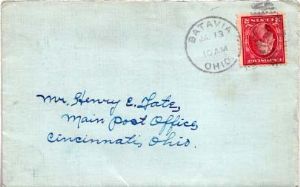 BATAVIA
13
10 AM
OHIO
Mr. Henry C. Tate,
Main Post Office,
Cincinnati, Ohio.